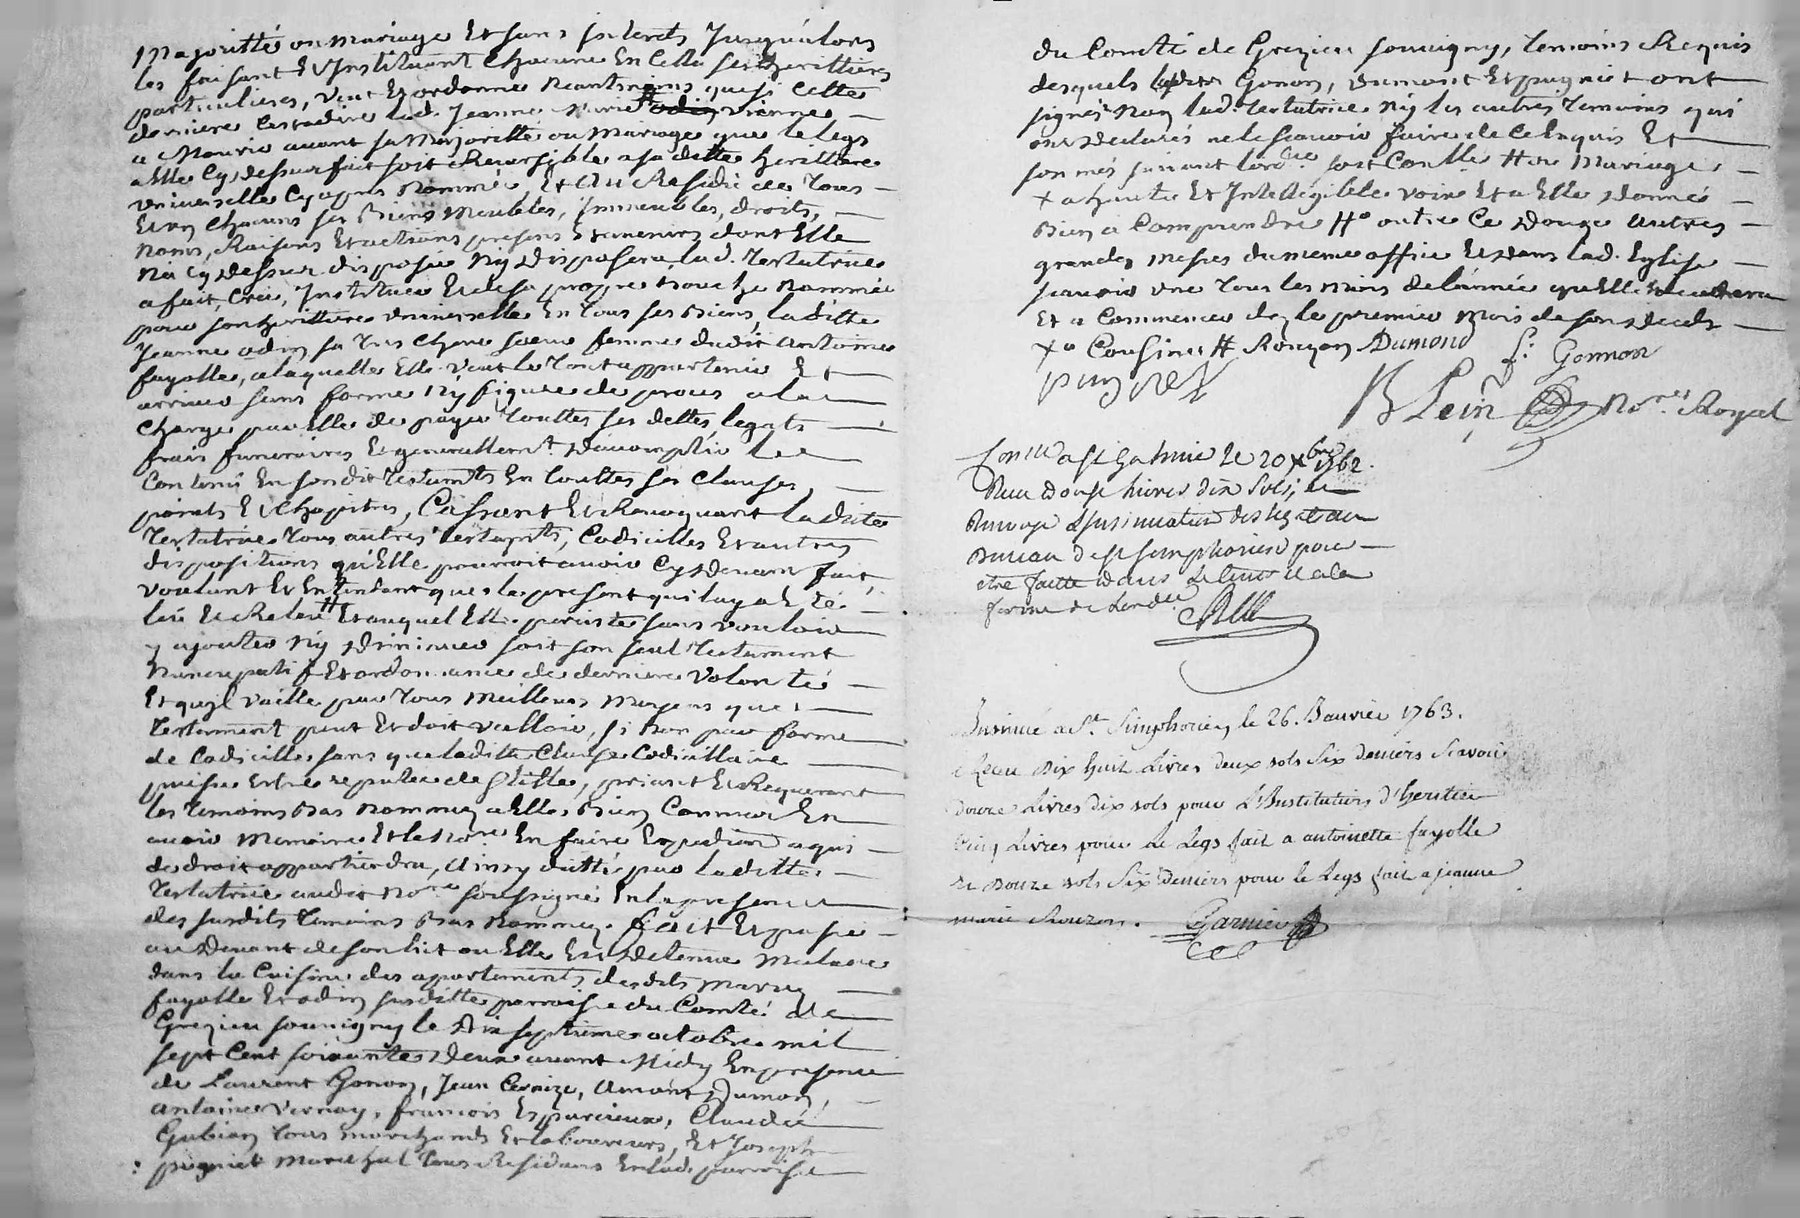 Majoritté ou mariage Et sans interets Jusqu'alors
les faisant & Instituant chacune En Celle ses herittieres
particulieres, veut Et ordonne Neantmoins que si Cette
derniere Cestadire lad. Jeanne Marie # vienne
a Mourir avant sa Majoritté ou Mariage que le legs
a Elle Cy dessus fait soit Reversible a sa ditte herittiere
universelle Cy apres Nommée, Et Au Residu de Tous
Et un Chacuns ses Biens Meubles, Immeubles, droits,
Noms, Raisons Et actions presens Et avenirs dont Elle
Na Cy dessus disposé Ny disposera, lad. Testatrice
a fait, Créé, Institué Et de sa propre Bouche Nommée
pour son herittiere universelle En Tous ses Biens, la ditte
Jeanne odin sa Tres Chere soeur femme dudit antoine
fayolle, a laquelle Elle veut le Tout appartenir Et
arriver sans forme Ny figure de proces a la
Charge par Elle de payer Touttes ses dettes legats
frais funeraires Et generallemt. d'accomplir le
Contenu En son dit Testamt En touttes ses Clauses,
points Et Chapitres, Cassant Et Revoquant la ditte
Testatrice Tous autres Testamts, Codicilles Et autres
dispositions qu'Elle pourroit avoir Cy devant fait,
voulant Et Entendant que le present qui luy a Eté
leü Et Releu # Et auquel Elle persiste sans vouloir
y ajouter Ny diminuer soit son seul Testament
Nuncupatif Et ordonnance de derniere volonté
Et qu'il vaille par Tous Meilleurs Moyens que
Testament peut Et doit valloir, si Non par forme
de Codicille, sans que la ditte Clause Codicillaire
puisse Estre reputée de Stille, priant Et Requerant
les Temoins Bas Nommez a Elle Bien Connus En
avoir Memoire Et le Nore. En faire Expedition a qui
de droit appartiendra, Ainsy dicté par la ditte
Testatrice audit Nore soussigné En la presence
des susdits Temoins Bas Nommez. fait Et passé
au Devant de son Lit ou Elle Est detenue Malade
dans la Cuisine des apartements desdits Mariez
fayolle Et odin susditte parroisse du Comté de
Grezieu souvigny le dix septieme octobre mil
sept Cent soixante deux avant Midy En presence
de Laurent Gonon, Jean Cernize, Amant Dumon,
antoine Vernay, francois Esparcieux, Claude
Gubian Tous marchands Et laboureurs, Et Joseph
pugniet Marechal Tous Residans En lad. parroisse
du Comté de Grezieu souvigny, Temoins Requis
desquels lesdits Gonon, Dumont Et pugniet ont
signé Non lad. Testatrice Ny les autres Temoins qui
ont Declarés ne le scavoir faire de Ce Enquis Et
sommés suivant lordce soit Conllé # ou Mariage
+ a haute Et Intelligible voix Et a Elle donné
Bien a Comprendre #o outre Ce Douze autres
grandes Messes du meme office Et dans lad. Eglise
scavoir une Tous les Mois de l'année qu'Elle decedera
Et a Commencer dez le premier Mois de son deceds
+o Cousine # Rouzon Dumond f: Gonnon
pugniet
Blein Nore. Royal
Conllé a St Galmier le 20 Xbre 1762.
Recu Douze livres dix sols, et
Renvoyé l'Insinuation des legs au
Bureau de St Simphorien pour
etre faitte dans le tems et a la
forme de Lordce
Insinué a St. Simphorien, le 26. Janvier 1763.
Recu Dix huit Livres deux sols Six deniers Scavoir
Douze Livres dix sols pour L'Institution d'heritier
Cinq Livres pour Le Legs fait a antoinette fayolle
Et Douze sols Six deniers pour le Legs fait a jeanne
marie Rouzon. Garnier